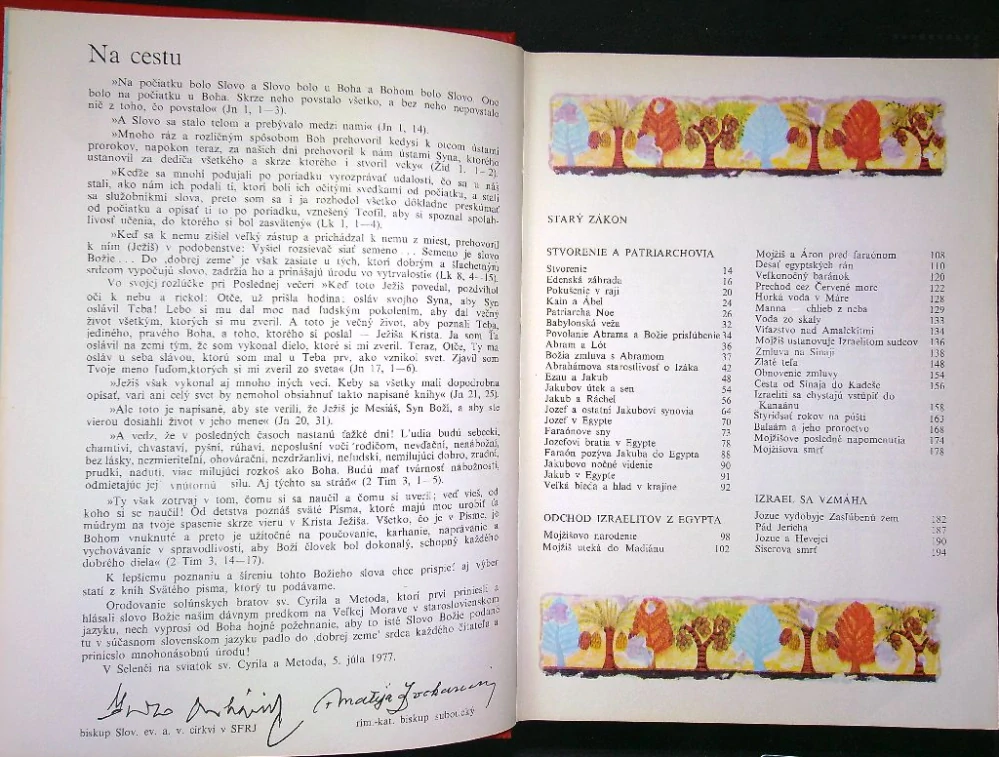 Na cestu
»Na počiatku bolo Slovo a Slovo bolo u Boha a Bohom bolo Slovo. Ono
bolo na počiatku u Boha. Skrze neho povstalo všetko, a bez neho nepovstalo
nič z toho, čo povstalo« (Jn 1, 1—3).
»A Slovo sa stalo telom a prebývalo medzi nami« (Jn 1, 14).
»Mnoho ráz a rozličným spôsobom Boh prehovoril kedysi k otcom ústami
prorokov, napokon teraz, za našich dní prehovoril k nám ústami Syna, ktorého
ustanovil za dediča všetkého a skrze ktorého i stvoril veky« (Žid 1, 1—2).
»Keďže sa mnohí podujali po poriadku vyrozprávať udalosti, čo sa u nás
stali, ako nám ich podali tí, ktorí boli ich očitými svedkami od počiatku, a stali
sa služobníkmi slova, preto som sa i ja rozhodol všetko dôkladne preskúmať
od počiatku a opísať ti to po poriadku, vznešený Teofil, aby si spoznal spoľah-
livosť učenia, do ktorého si bol zasvätený« (Lk 1, 1—4).
»Keď sa k nemu zišiel veľký zástup a prichádzal k nemu z miest, prehovoril
k ním (Ježiš) v podobenstve: Vyšiel rozsievač siať semeno .. Semeno je slovo
Božie... Do ‚dobrej zeme' je však zasiate u tých, ktorí dobrým a šľachetným
srdcom vypočujú slovo, zadržia ho a prinášajú úrodu vo vytrvalosti« (Lk 8, 4—15).
Vo svojej rozlúčke pri Poslednej večeri »Keď toto Ježiš povedal, pozdvihol
oči k nebu a riekol: Otče, už prišla hodina; osláv svojho Syna, aby Syn
oslávil Teba! Lebo si mu dal moc nad ľudským pokolením, aby dal večný
život všetkým, ktorých si mu zveril. A toto je večný život, aby poznali Teba,
jediného, pravého Boha, a toho, ktorého si poslal — Ježiša Krista. Ja som Ťa
oslávil na zemi tým, že som vykonal dielo, ktoré si mi zveril. Teraz, Otče, Ty ma
osláv u seba slávou, ktorú som mal u Teba prv, ako vznikol svet. Zjavil som
Tvoje meno ľuďom,ktorých si mi zveril zo sveta« (Jn 17, 1—6).
»Ježiš však vykonal aj mnoho iných vecí. Keby sa všetky mali dopodrobna
opísať, vari ani celý svet by nemohol obsiahnuť takto napísané knihy« (Jn 21, 25).
»Ale toto je napísané, aby ste verili, že Ježiš je Mesiáš, Syn Boží, a aby ste
vierou dosiahli život v jeho mene« (Jn 20, 31).
»A vedz, že v posledných časoch nastanú ťažké dni! Ľudia budú sebeckí,
chamtiví, chvastaví, pyšní, rúhaví, neposlušní voči rodičom, nevďační, nenábožní,
bez lásky, nezmieriteľní, ohovárační, nezdržanliví, neľudskí, nemilujúci dobro, zradní,
prudkí, nadutí, viac milujúci rozkoš ako Boha. Budú mať tvárnosť nábožnosti,
odmietajúc jej vnútornú silu. Aj týchto sa stráň« (2 Tim 3, 1—5).
»Ty však zotrvaj v tom, čomu si sa naučil a čomu si uveril; veď vieš, od
koho si se naučil! Od detstva poznáš sväté Písma, ktoré majú moc urobiť ťa
múdrym na tvoje spasenie skrze vieru v Krista Ježiša. Všetko, čo je v Písme, je
Bohom vnuknuté a preto je užitočné na poučovanie, karhanie, naprávanie a
vychovávanie v spravodlivosti, aby Boží človek bol dokonalý, schopný každého
dobrého diela« (2 Tim 3, 14—17).
K lepšiemu poznaniu a šíreniu tohto Božieho slova chce prispieť aj výber
statí z kníh Svätého písma, ktorý tu podávame.
Orodovanie solúnskych bratov sv. Cyrila a Metoda, ktorí prví priniesli a
hlásali slovo Božie našim dávnym predkom na Veľkej Morave v staroslovienskom
jazyku, nech vyprosí od Boha hojné požehnanie, aby to isté Slovo Božie podané
tu v súčasnom slovenskom jazyku padlo do ‚dobrej zeme' srdca každého čitateľa a
prinieslo mnohonásobnú úrodu!
V Selenči na sviatok sv. Cyrila a Metoda, 5. júla 1977.
biskup Slov. ev. a. v. cirkvi v SFRJ
rím.-kat. biskup subotický
STARÝ ZÁKON
STVORENIE A PATRIARCHOVIA
Stvorenie 14
Edenská záhrada 16
Pokušenie v raji 20
Kain a Ábel 24
Patriarcha Noe 26
Babylonská veža 32
Povolanie Abrama a Božie prisľúbenie 34
Abram a Lót 36
Božia zmluva s Abramom 37
Abrahámova starostlivosť o Izáka 42
Ezau a Jakub 48
Jakubov útek a sen 54
Jakub a Ráchel 56
Jozef a ostatní Jakubovi synovia 64
Jozef v Egypte 70
Faraónove sny 73
Jozefovi bratia v Egypte 78
Faraón pozýva Jakuba do Egypta 88
Jakubovo nočné videnie 90
Jakub v Egypte 91
Veľká bieda a hlad v krajine 92
ODCHOD IZRAELITOV Z EGYPTA
Mojžišovo narodenie 98
Mojžiš uteká do Madiánu 102
Mojžiš a Áron pred faraónom 108
Desať egyptských rán 110
Veľkonočný baránok 120
Prechod cez Červené more 122
Horká voda v Máre 128
Manna — chlieb z neba 129
Voda zo skaly 133
Víťazstvo nad Amalekitmi 134
Mojžiš ustanovuje Izraelitom sudcov 136
Zmluva na Sinaji 138
Zlaté teľa 148
Obnovenie zmluvy 154
Cesta od Sinaja do Kadeše 156
Izraeliti sa chystajú vstúpiť do
Kanaánu 158
Štyridsať rokov na púšti 163
Balaám a jeho proroctvo 168
Mojžišove posledné napomenutia 174
Mojžišova smrť 178
IZRAEL SA VZMÁHA
Jozue vydobyje Zasľúbenú zem 182
Pád Jericha 187
Jozue a Hevejci 190
Siserova smrť 194